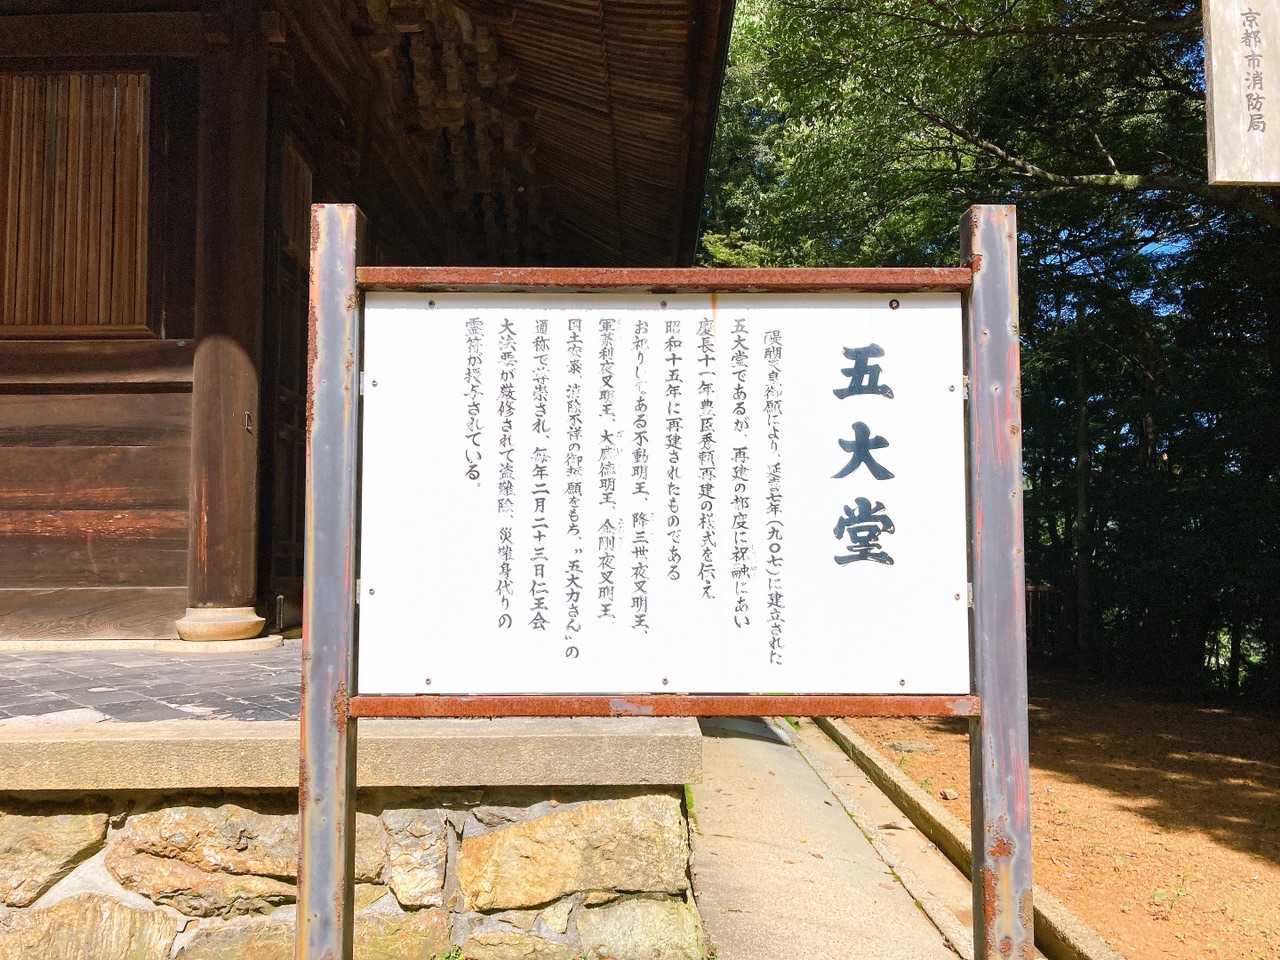 五大堂
醍醐天皇御願により、延喜七年(九〇七)に建立された
五大堂であるが、再建の都度に祝融にあい
慶長十一年豊臣秀頼再建の様式を伝え、
昭和十五年に再建されたものである
お祀りしてある不動明王、降三世夜叉明王、
軍荼利夜叉明王、大威徳明王、金剛夜叉明王、
国土安泰、消除不祥の御誓願をもち、〝五大力さん〟の
通称で尊崇され、毎年二月二十三日仁王会
大法要が厳修されて盗難除、災難身代りの
霊符が授与されている。
京都市消防局